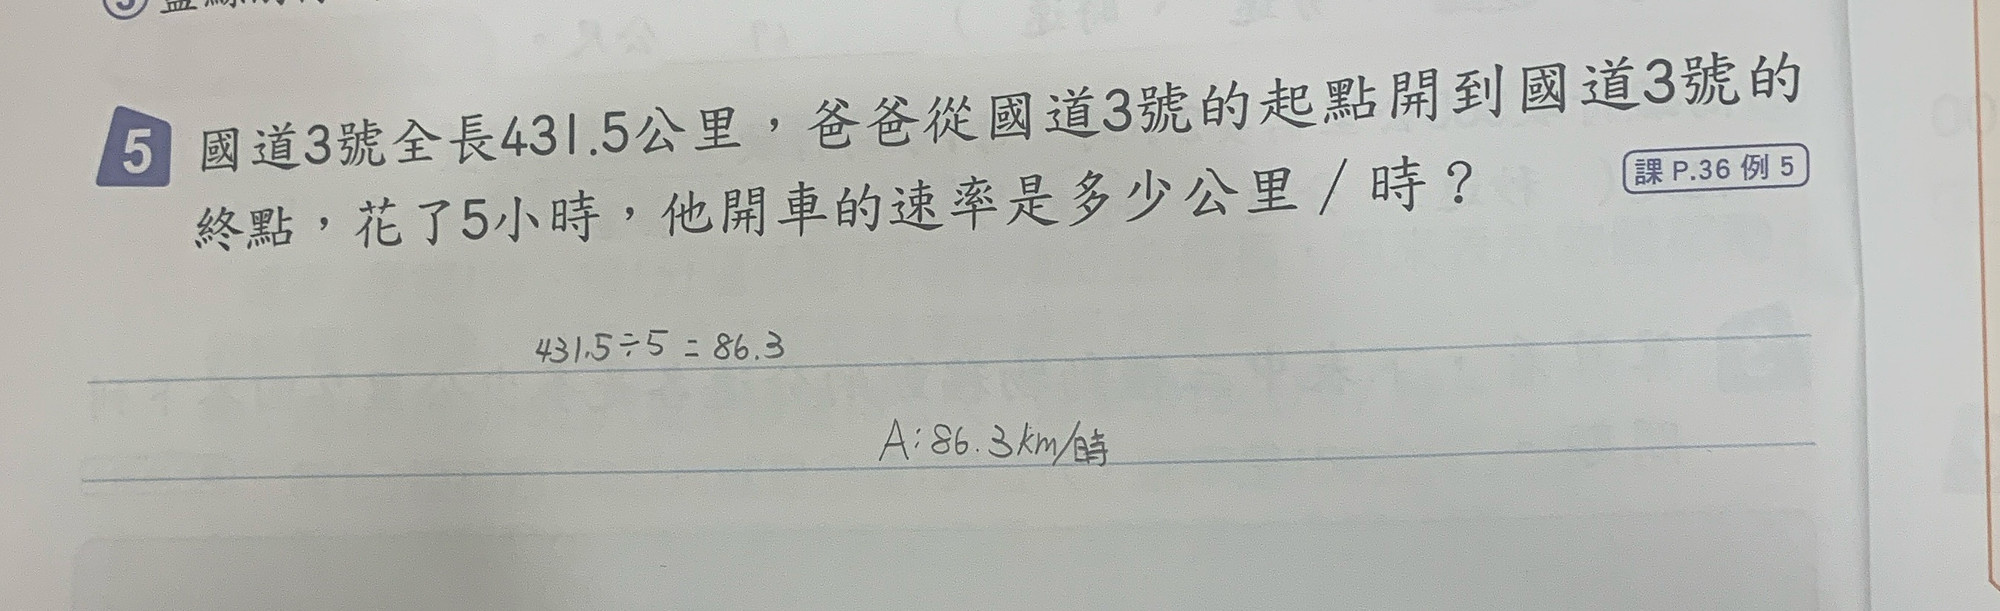 5 國道3號全長431.5公里，爸爸從國道3號的起點開到國道3號的
終點，花了5小時，他開車的速率是多少公里/時？
課 P.36 例 5
431.5÷5=86.3
A:86.3km/時